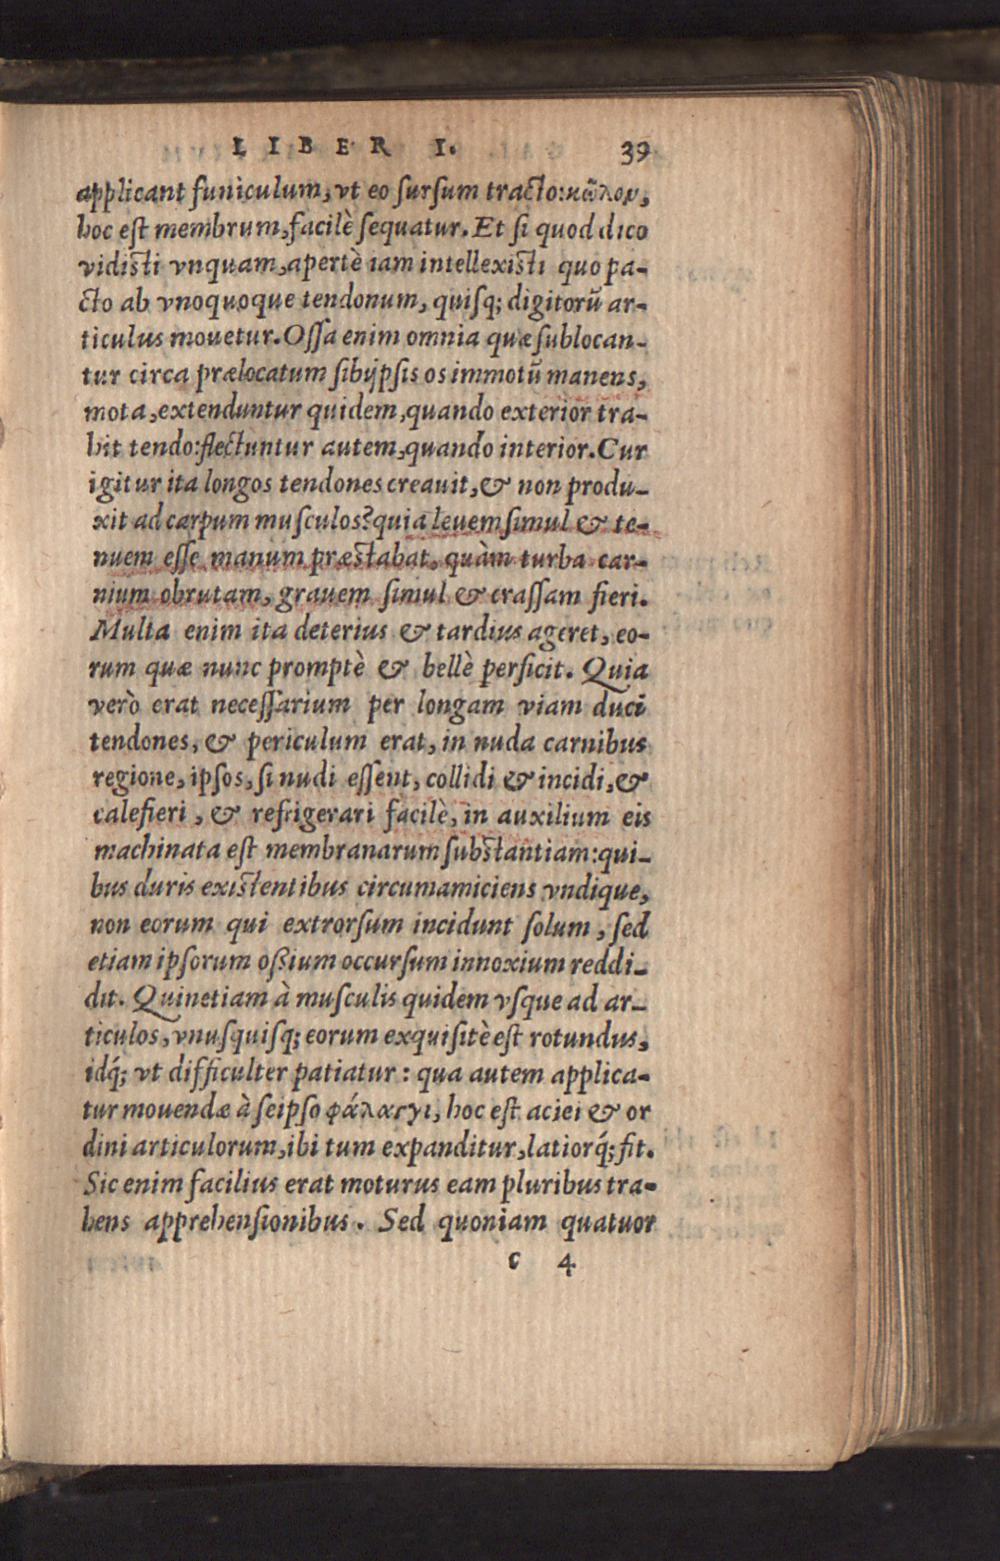 LIBER I. 39
applicant funiculum, vt eo sursum tracto: κῶλον,
hoc est membrum, facilè sequatur. Et si quod dico
vidisti vnquam, apertè iam intellexisti quo pa-
cto ab vnoquoque tendonum, quisq; digitorũ ar-
ticulus mouetur. Ossa enim omnia quæ sublocan-
tur circa prælocatum sibijpsis os immotũ manens,
mota, extenduntur quidem, quando exterior tra-
hit tendo: flectuntur autem, quando interior. Cur
igitur ita longos tendones creauit, & non produ-
xit ad carpum musculos? quia leuem simul & te-
nuem esse manum præstabat, quàm turba car-
nium obrutam, grauem simul & crassam fieri.
Multa enim ita deterius & tardius ageret, eo-
rum quæ nunc promptè & bellè perficit. Quia
verò erat necessarium per longam viam duci
tendones, & periculum erat, in nuda carnibus
regione, ipsos, si nudi essent, collidi & incidi, &
calefieri, & refrigerari facilè, in auxilium eis
machinata est membranarum substantiam: qui-
bus duris existentibus circumamiciens vndique,
non eorum qui extrorsum incidunt solum, sed
etiam ipsorum ossium occursum innoxium reddi-
dit. Quinetiam à musculis quidem vsque ad ar-
ticulos, vnusquisq; eorum exquisitè est rotundus,
idq́; vt difficulter patiatur: qua autem applica-
tur mouendæ à seipso φάλαγγι, hoc est aciei & or
dini articulorum, ibi tum expanditur, latiorq́; fit.
Sic enim facilius erat moturus eam pluribus tra-
hens apprehensionibus. Sed quoniam quatuor
c 4